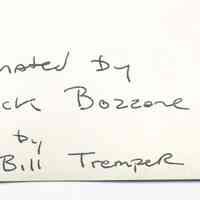 nated by
ck Bozzone
by
Bill Tremper